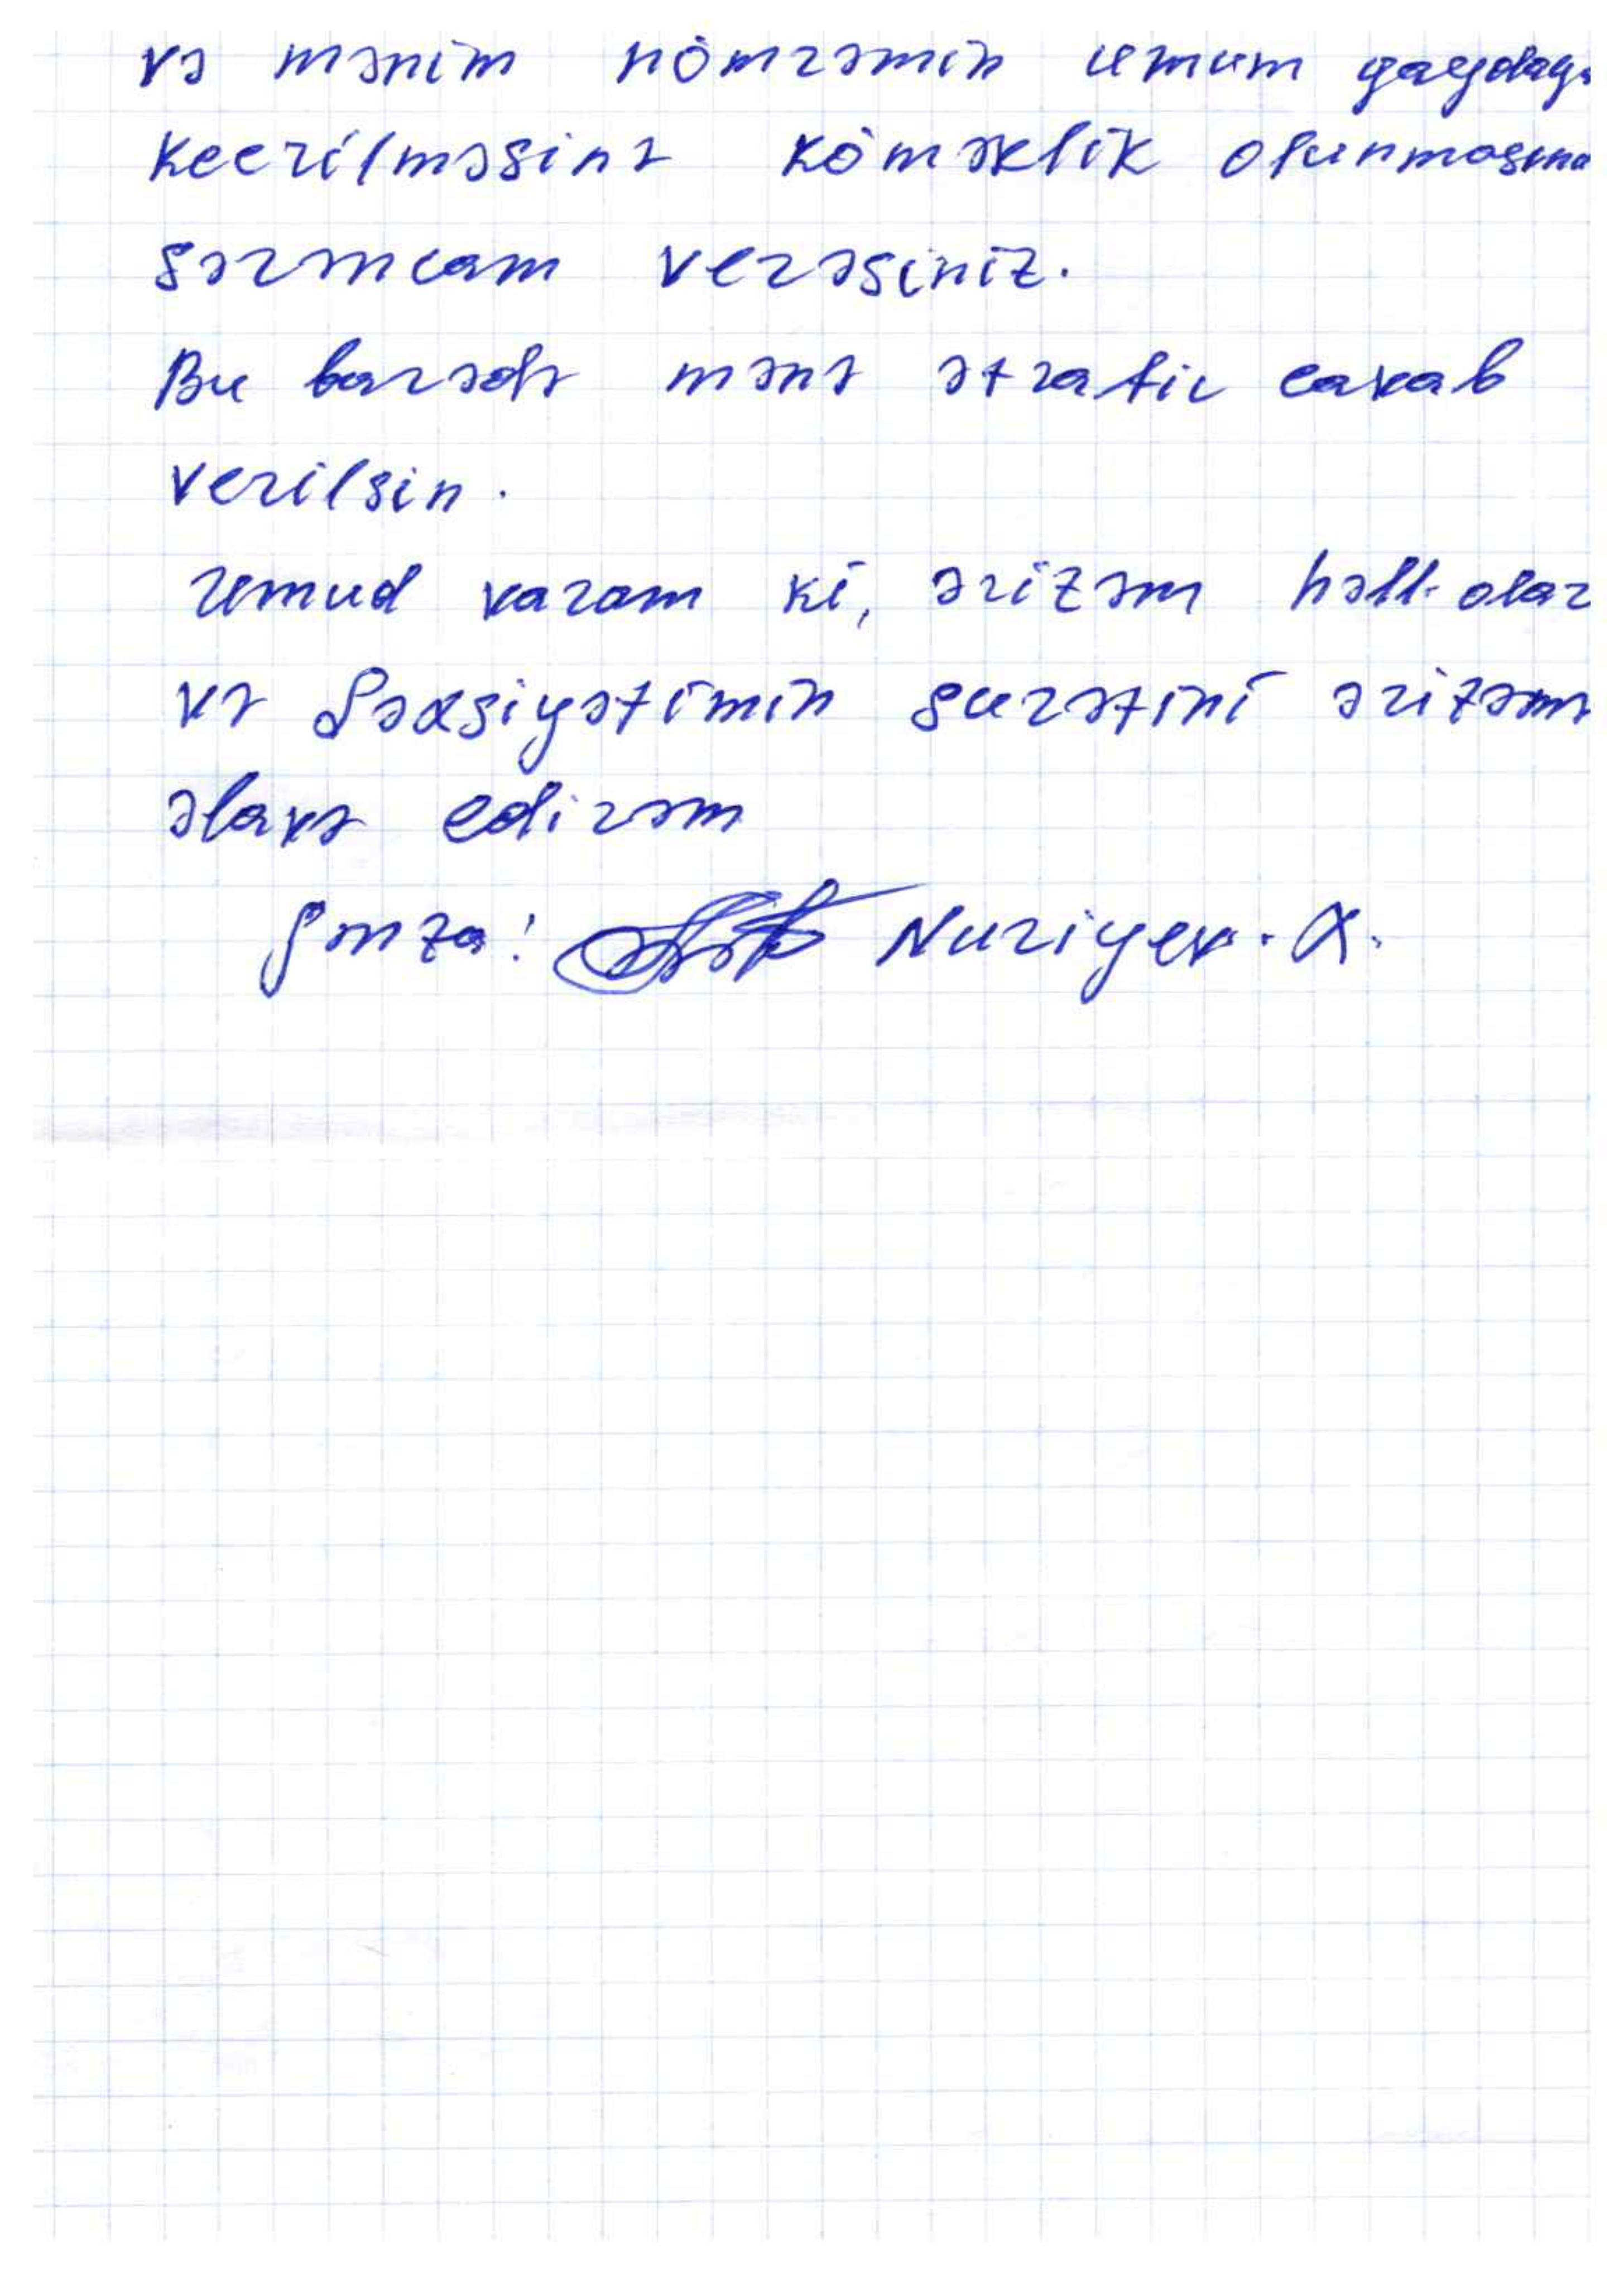 və mənim nömrəmin umum qaydaya
keçirilməsinə köməklik olunmasına
sərəncam verəsiniz.
Bu barədə mənə ətraflı cavab
verilsin.
Umud varam ki, ərizəm həll olar
və şəxsiyətimin surətini ərizəmə
əlavə edirəm
İmza: Nuriyev. X.